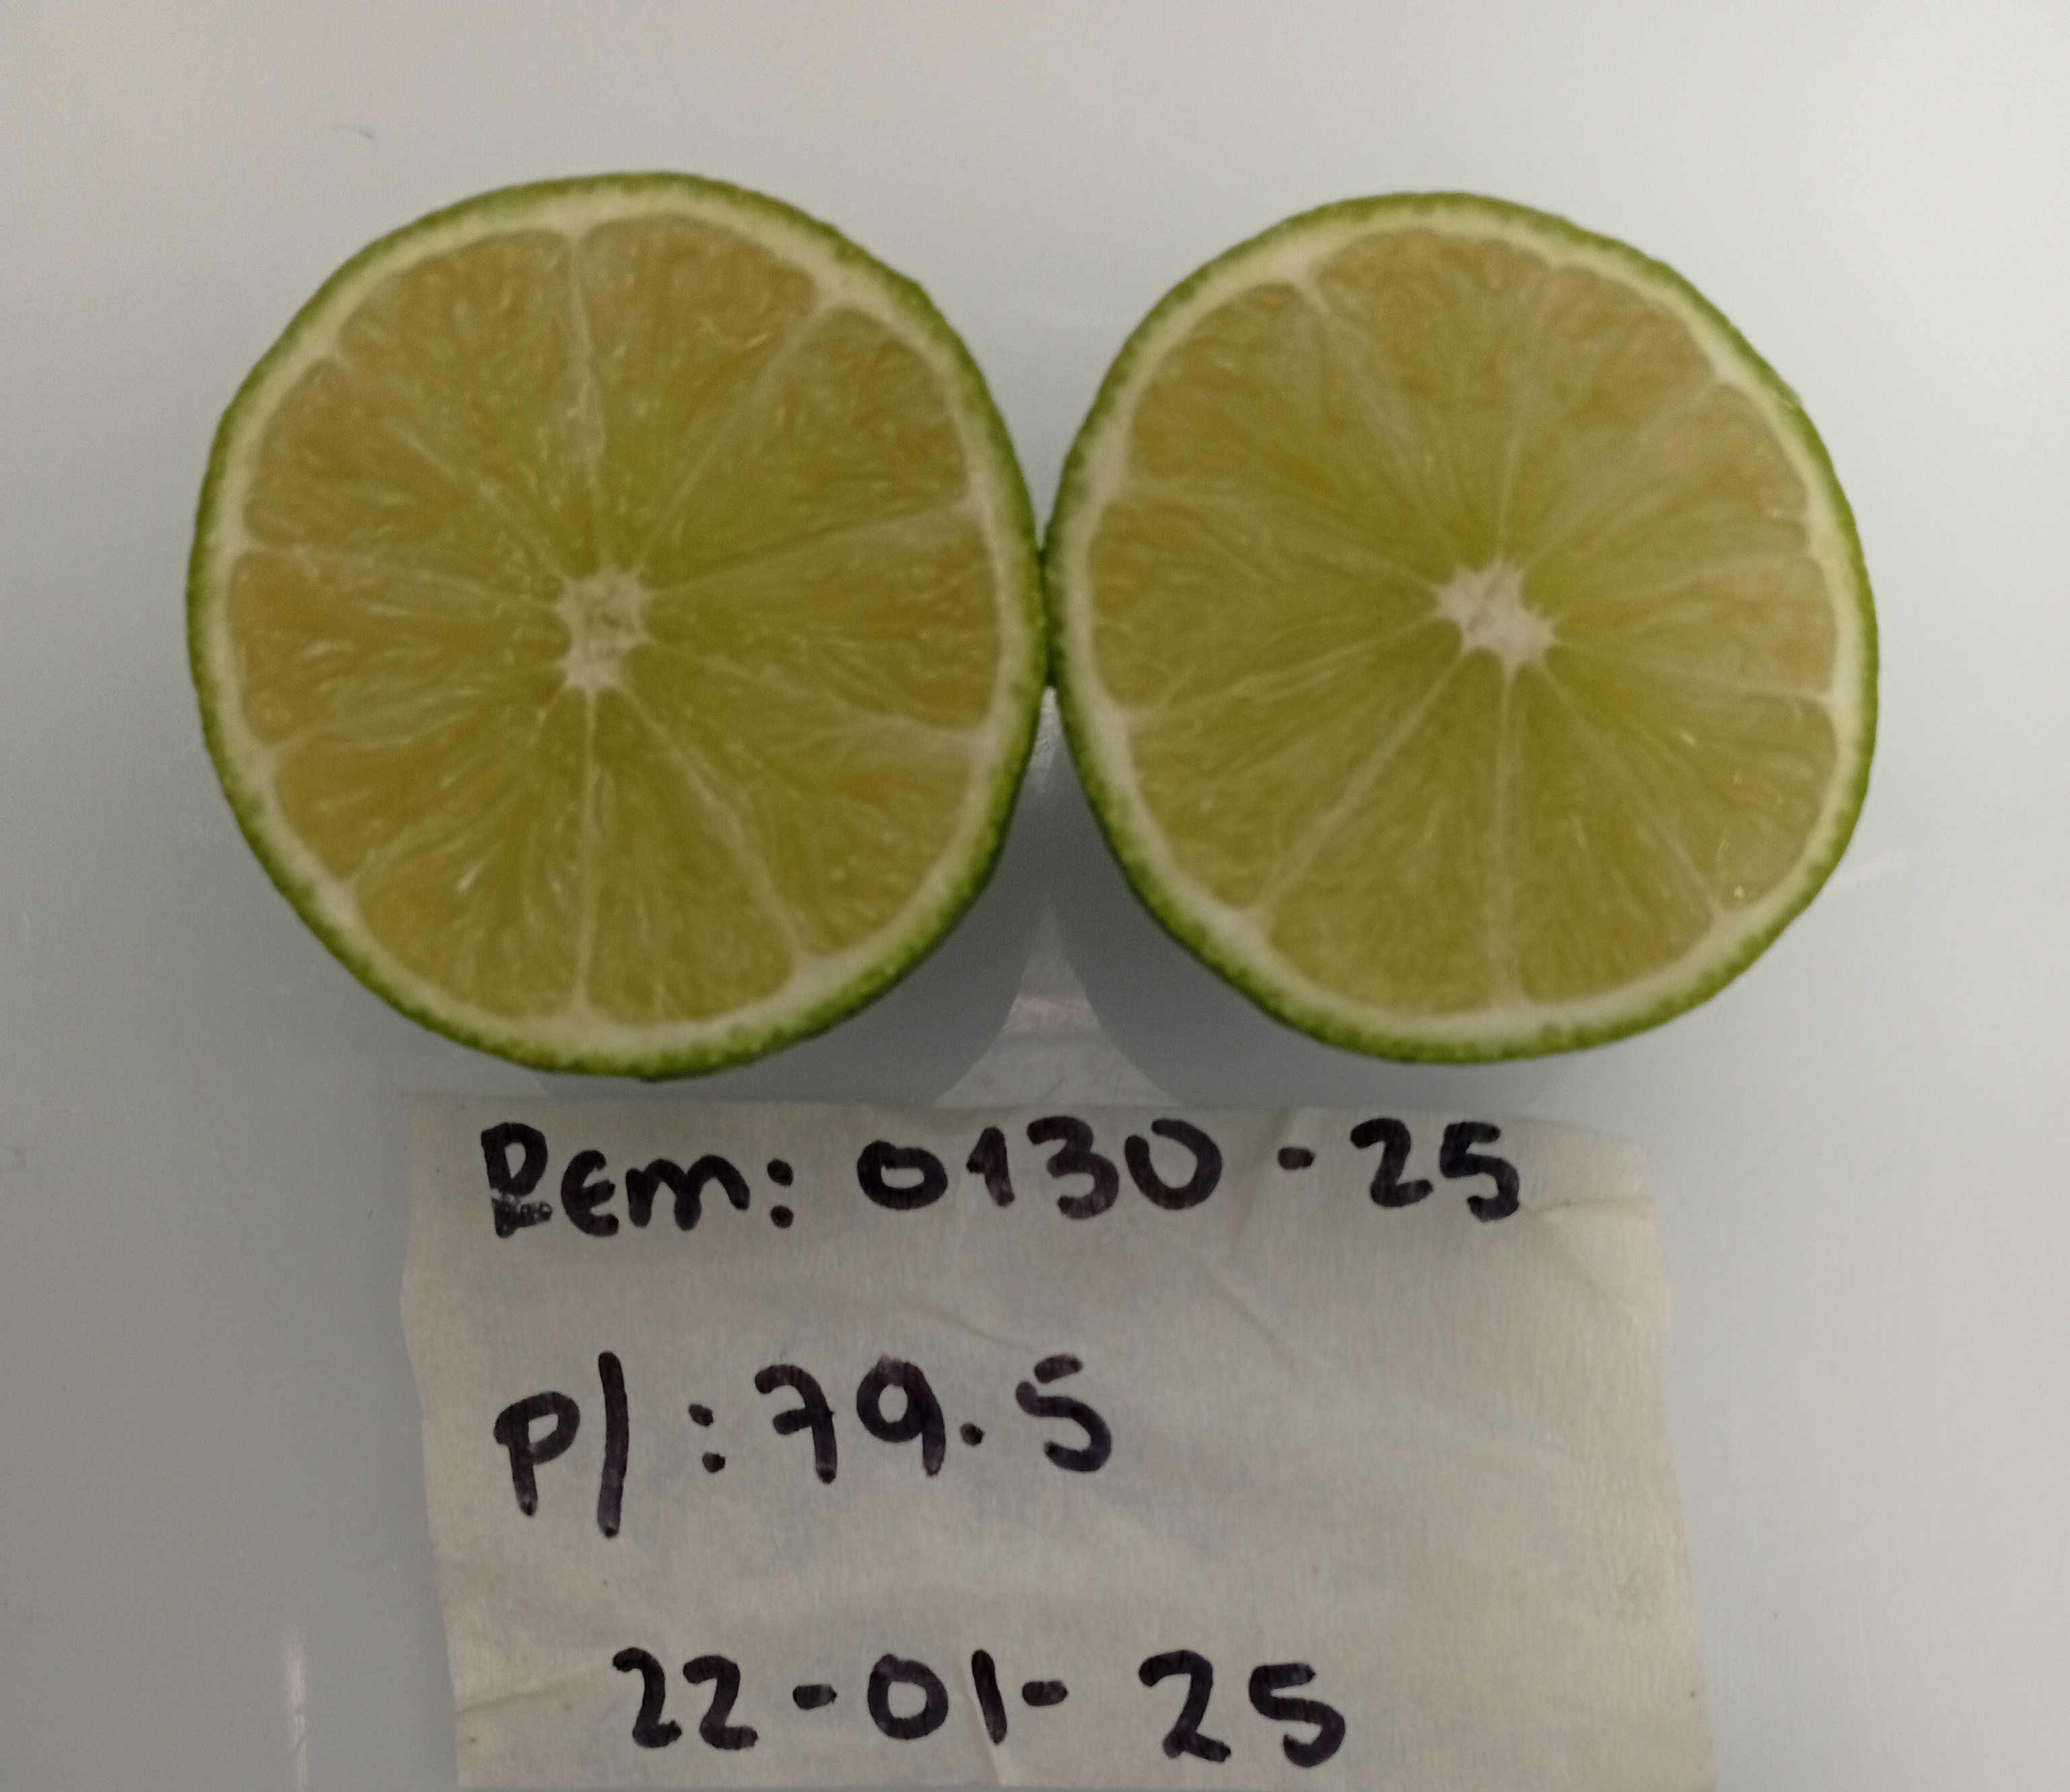 Rem: 0130-25
P/: 79.5
22-01-25